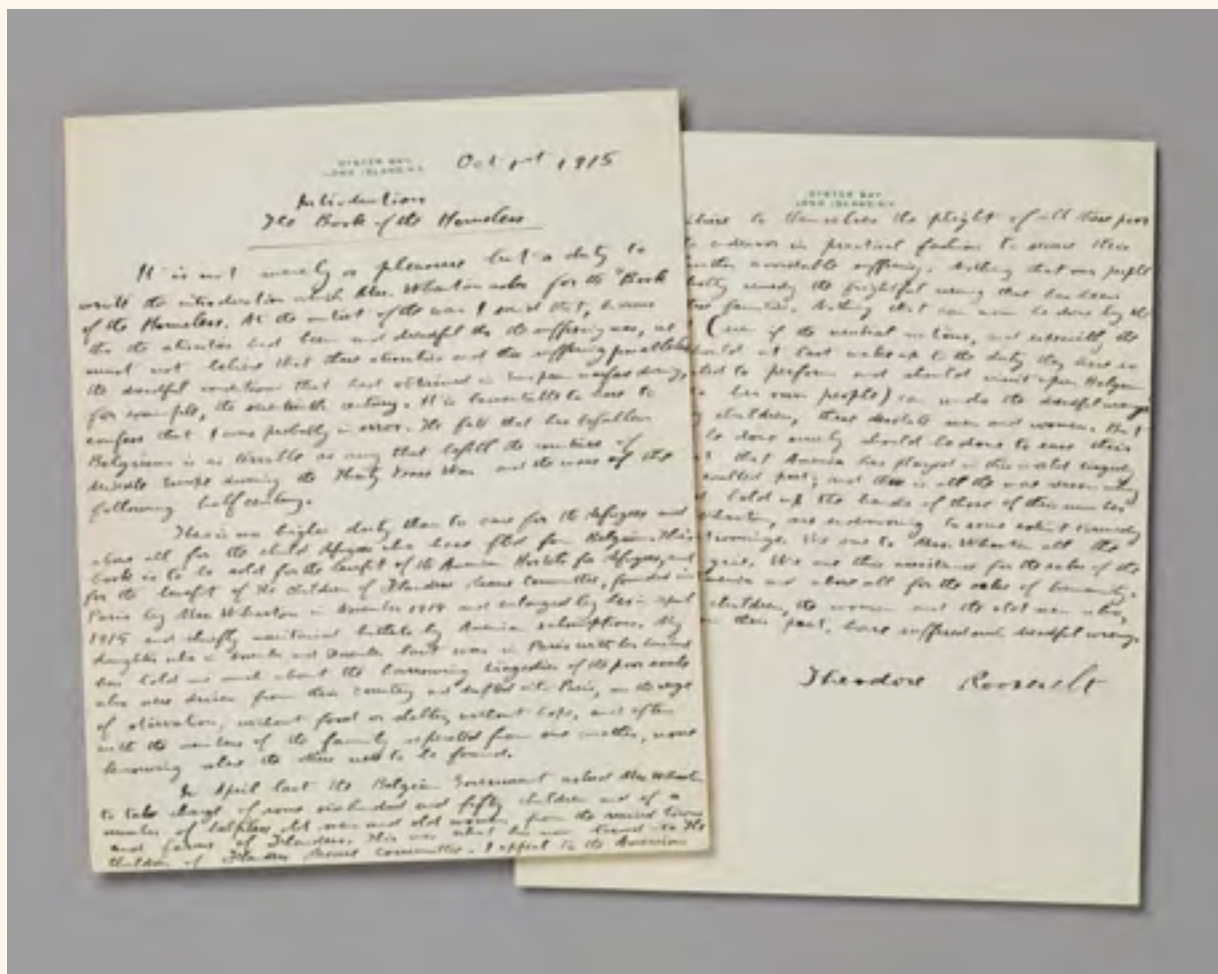 OYSTER BAY
LONG ISLAND N.Y.
Oct 1st 1915
Introduction
The Book of the Homeless
It is not merely a pleasure but a duty to
write the introduction which Mrs. Wharton asks for the "Book
of the Homeless. At the outset of the war I said that, hideous
tho the atrocities had been and dreadful tho the suffering was, we
must not believe that these atrocities and this suffering paralleled
the dreadful conditions that had obtained in European warfare during,
for example, the seventeenth century. It is lamentable to have to
confess that I was probably in error. The fate that has befallen
Belgium is as terrible as any that befell the countries of
Middle Europe during the Thirty Years War and the wars of the
following half century.
There is no higher duty than to care for the refugees and
above all for the child refugees who have fled from Belgium. This
book is to be sold for the benefit of the American Hostels for Refugees, and
for the benefit of the Children of Flanders Rescue Committee, founded in
Paris by Mrs Wharton in November 1914 and enlarged by her in April
1915 and chiefly maintained hitherto by American subscriptions. My
daughter who in November and December last was in Paris with her husband
has told me much about the harrowing tragedies of the poor souls
who were driven from their country and drifted into Paris, on the verge
of starvation, without food or shelter, without hope, and often
with the members of the family separated from one another, none
knowing where the others were to be found.
In April last the Belgian Government asked Mrs. Wharton
to take charge of some six hundred and fifty children and of a
number of helpless old men and old women from the ruined towns
and farms of Flanders. This was what has now turned into the
Children of Flanders Rescue Committee. I appeal to the American
OYSTER BAY
LONG ISLAND N.Y.
to themselves the plight of all these poor
to endeavor in practical fashion to secure their
avoidable suffering. Nothing that our people
remedy the frightful wrong that has been
families. Nothing that can now be done by the
(even if the neutral nations, and especially the
at last wakes up to the duty they have so
to perform and should visit upon Belgium
her own people) can undo the dreadful wrongs
children, these desolate men and women. But
be done surely should be done to ease their
that America has played in this world tragedy
exalted part; and there is all the more reason why
hold up the hands of those of their number
Wharton, are endeavoring to some extent remedy
wrongs. We owe to Mrs. Wharton all the
give. We owe this assistance for the sake of the
America and above all for the sake of humanity.
children, the women and the old men who,
their part, have suffered such dreadful wrong.
Theodore Roosevelt